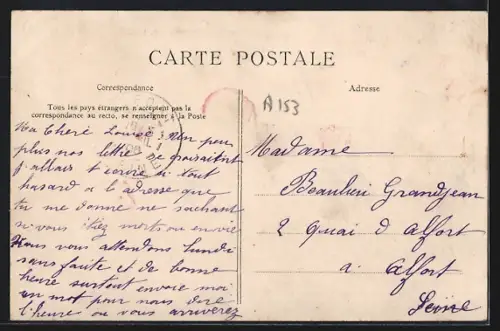 CARTE POSTALE
Correspondance
Tous les pays étrangers n'acceptent pas la
correspondance au recto, se renseigner à la Poste
Ma Cheré Louise Un peu
plus nos lettre se
j allais t ecrire a tout
hasard a l adresse que
tu me donne ne sachant
si vous étiez morts ou en vie
Nous vous attendons lundi
sans faute et de bonne
heure surtout envoie moi
un mot pour nous dire
l'heure ou vous arriverez
Adresse
A153
Madame
Beaulieu Grandjean
2 quai d Alfort
a Alfort
Seine